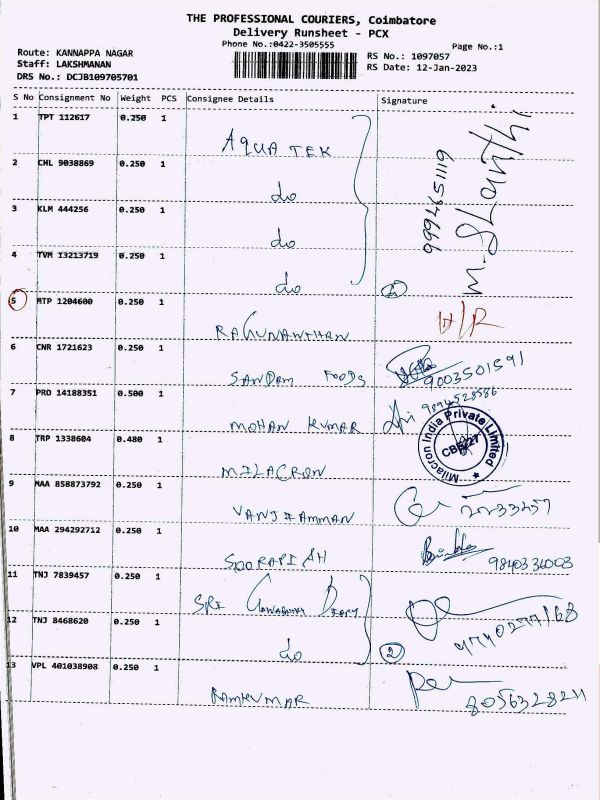 THE PROFESSIONAL COURIERS, Coimbatore
Delivery Runsheet - PCX
Phone No.:0422-3505555
Page No.:1
Route: KANNAPPA NAGAR
Staff: LAKSHMANAN
DRS No.: DCJB109705701
RS No.: 1097057
RS Date: 12-Jan-2023
S No Consignment No Weight PCS Consignee Details Signature
1 TPT 112617 0.250 1 AQUA TEK
2 CHL 9038869 0.250 1 do
3 KLM 444256 0.250 1 do
4 TVM 13213719 0.250 1 do
9994651119
5 MTP 1204600 0.250 1 RAGUNANTHAN H/R
6 CNR 1721623 0.250 1 SANDAM FOODS 9003501591
7 PRO 14188351 0.500 1 MOHAN KUMAR 9894528586
8 TRP 1338604 0.480 1 MILACRON
Milacron India Private Limited
CBE-27
9 MAA 858873792 0.250 1 VANJIAMMAN
10 MAA 294292712 0.250 1 SOORAPIAH 9840334003
11 TNJ 7839457 0.250 1 SRI
12 TNJ 8468620 0.250 1 do 2
13 VPL 401038908 0.250 1 RAMKUMAR 8056328211